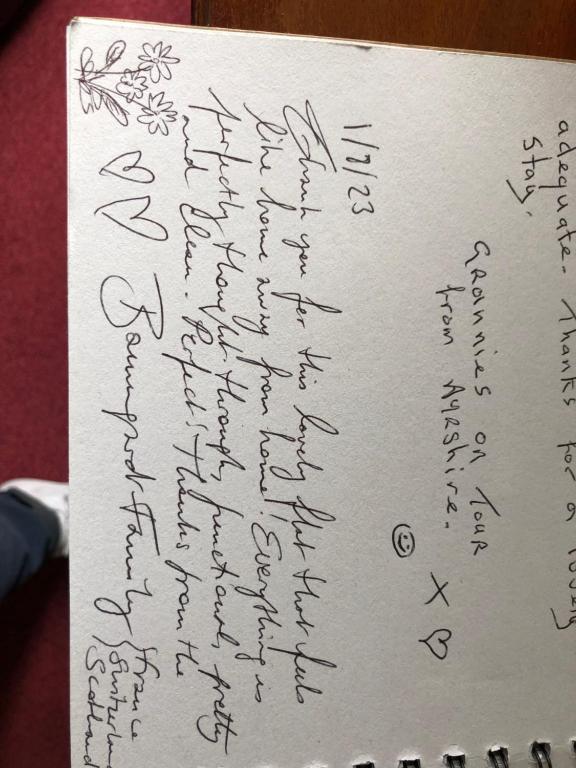 adequate. Thanks for a lovely
stay.
Grannies on Tour
from Ayrshire. X
1/7/23
Thank you for this lovely flat that feels
like home away from home! Everything is
perfectly thought through, functional, pretty
and clean. Perfect! Thanks from the
Family
France
Switzerland
Scotland